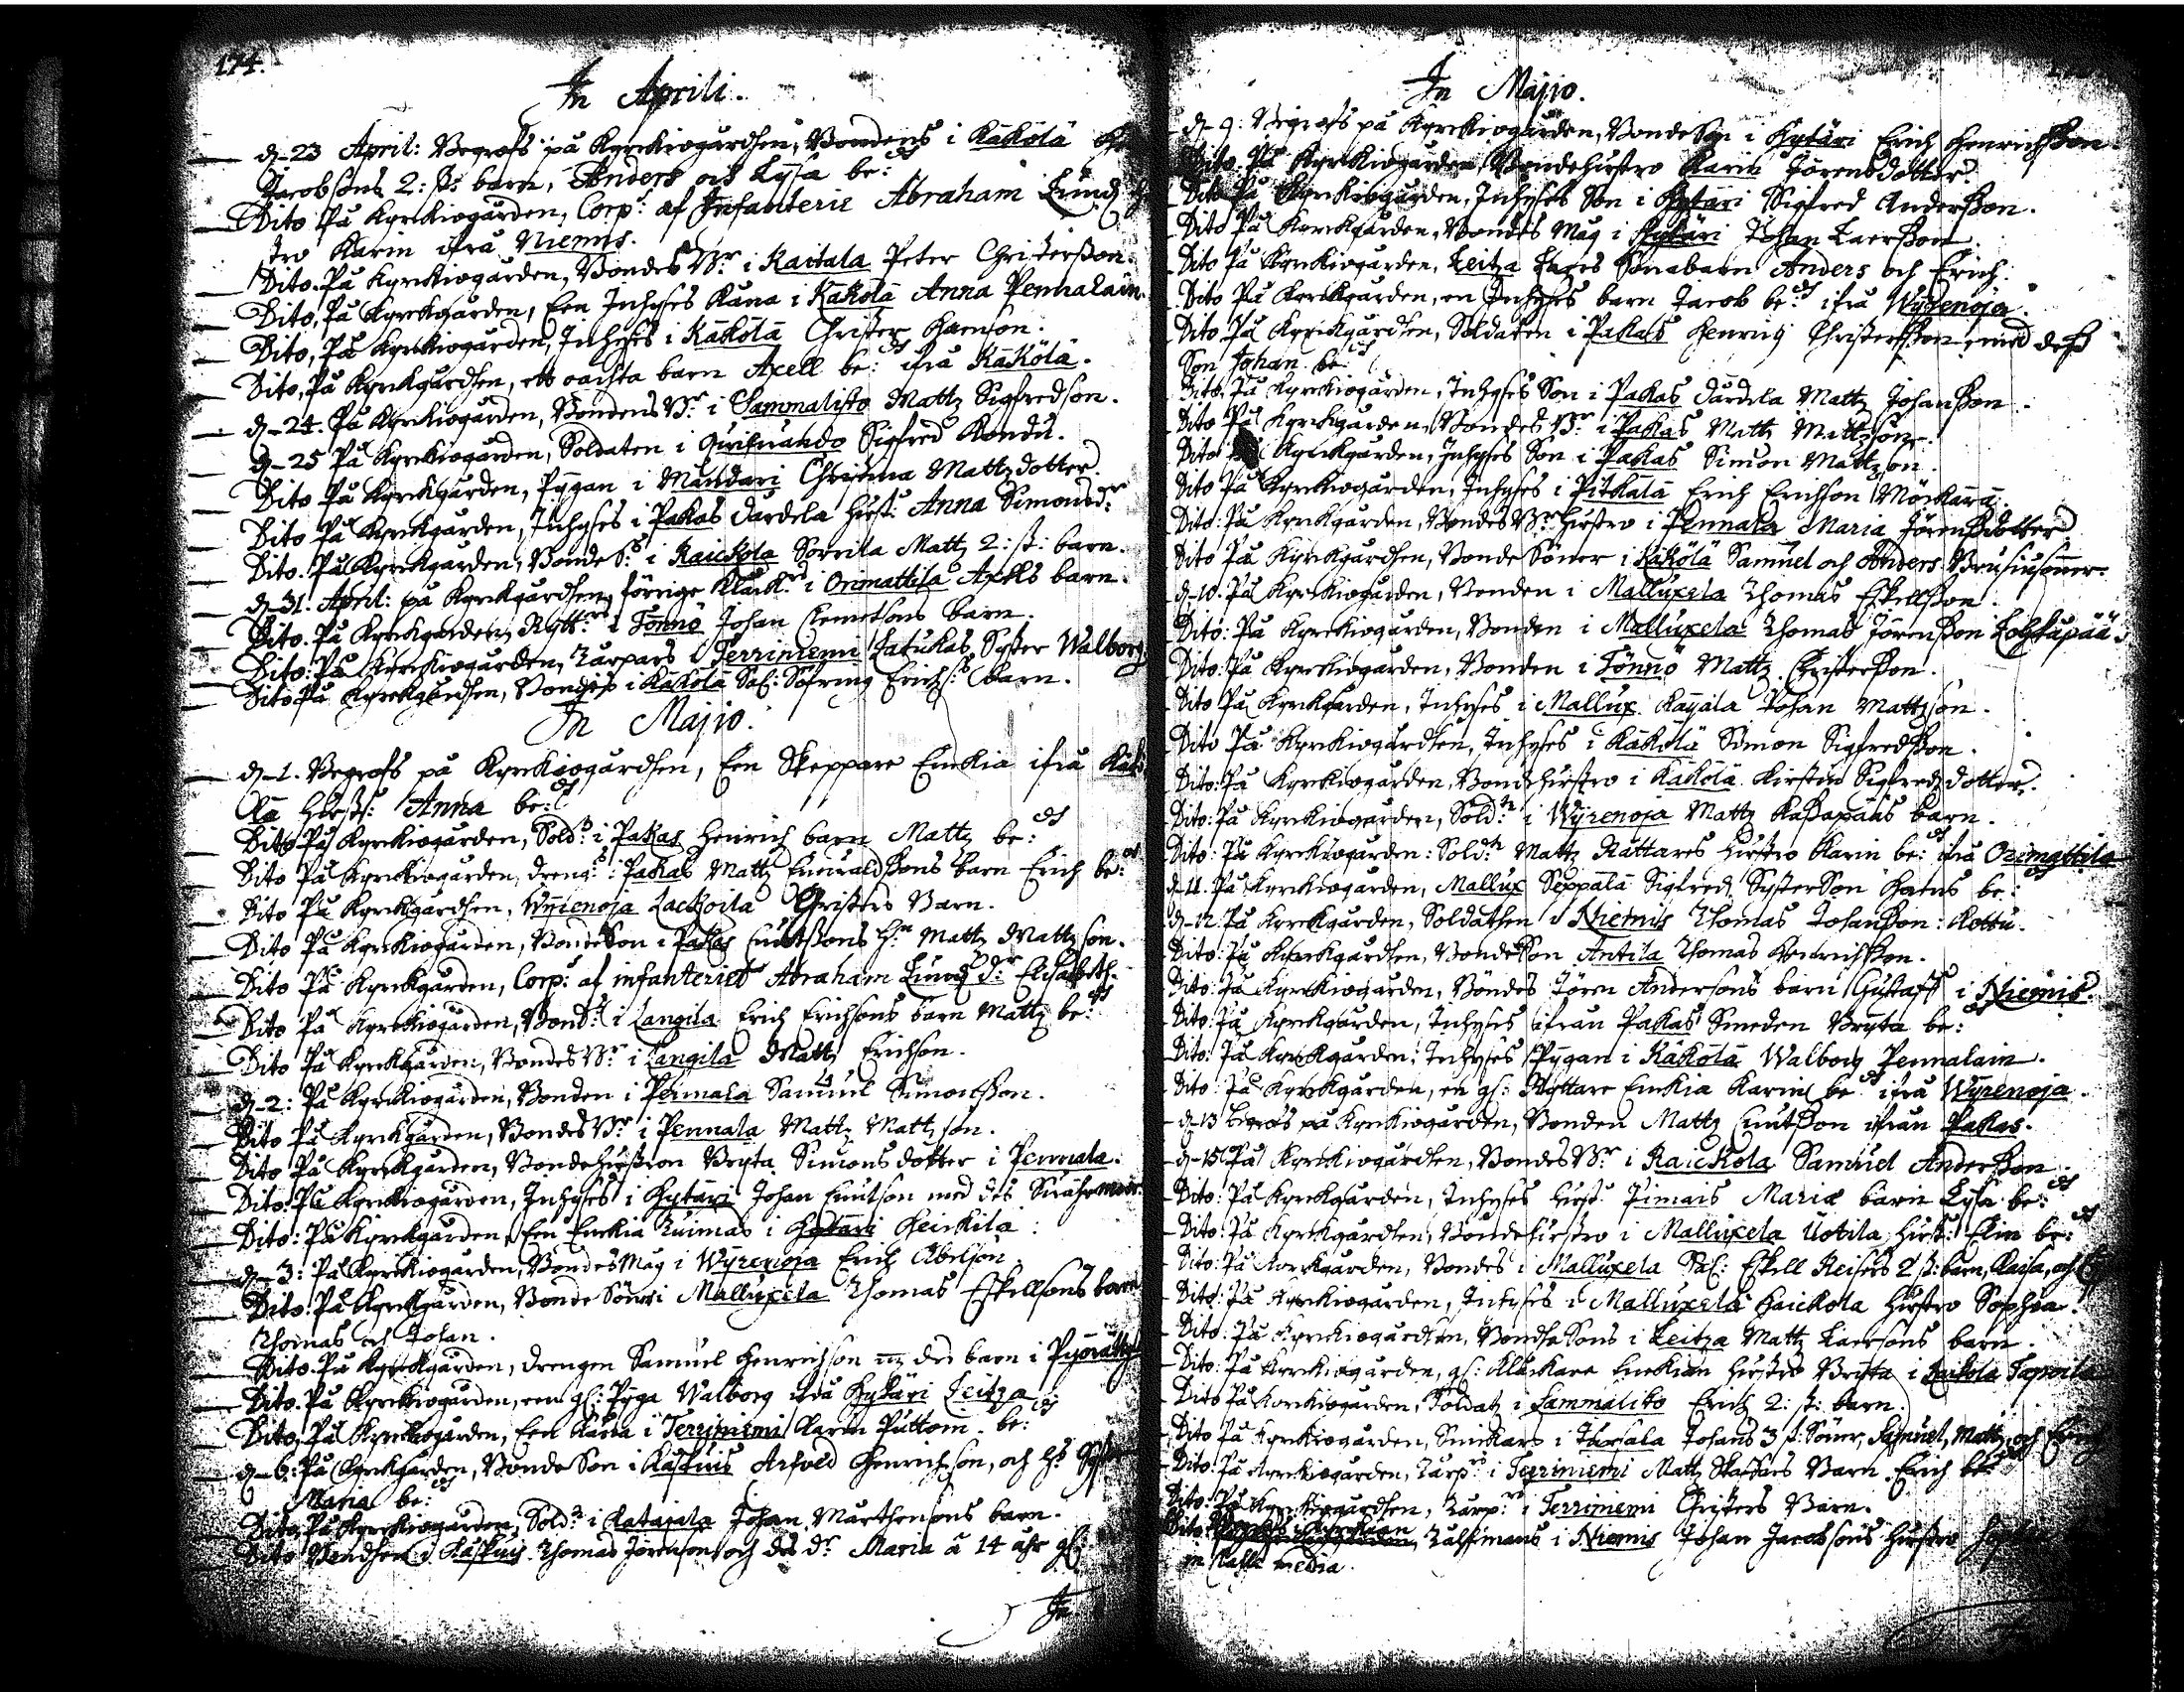 174.
In Aprili.
d. 23 April: Begrofs på Kyrckiogårdhen, Bondens i Käkölä
Jacobsons 2: st: barn, Anders och Lysa be:
Dito På Kyrckiogården, Corp: af Infanterie Abraham Lund
tro Karin ifrå Niemis.
Dito. På Kyrckiogården, Bondes Br i Kaitala Peter Christersson.
Dito, På Kyrckgården, Een Inhyses Kåna i Käkölä Anna Pennalain.
Dito, På Kyrckiogården, Inhyses i Käkölä Christer Hanson.
Dito, På Kyrckgårdhen, ett oächta barn Axell be: ifrå Käkölä.
d. 24. På Kyrckiogården, Bondens Br i Sammalisto Mattz Sigfredson.
d. 25 På Kyrckiogården, Soldaten i Sigfred Kondu.
Dito På Kyrckgården, Pygan i Mändäri Christina Mattzdotter.
Dito På Kyrckgården, Inhyses i Pakas Dardela Hust: Anna Simonsd:
Dito. På Kyrckgården, Bonde S: i Raickola Sorrila Mattz 2: st: barn.
d. 31. April: på Kyrckgårdhen, förrige Klåck: i Orimattila Axells barn.
Dito. På Kyrckgården, Rytt: i Tönnö Johan Clemetsons barn.
Dito: På Kyrckiogården, Torpars i Terriniemi Latukas Syster Walborg
Dito På Kyrckgårdhen, Bondes i Käkölä Sal: Sofring Erichs: barn.
In Majio.
d. 1. Begrofs på Kyrckiogårdhen, Een Skeppare Enckia ifrå Käkö
lä Anna be:
Dito På Kyrckiogården, Sold: i Pakas Henrich barn Mattz be:
Dito På Kyrckiogården, dreng: i Pakas Mattz barn Erich be:
Dito På Kyrckgårdhen, Wyrenoja Lackoila Christers Barn.
Dito På Kyrckiogården, Bonde Son i Pakas Knutssons Mattz Mattzson.
Dito På Kyrckgården, Corp: af infanteriet Abraham Lund d: Elisabeth.
Dito På Kyrckiogården, Bond: i Langila Erich Erichsons barn Mattz be:
Dito På Kyrckgården, Bondes Br i Langila Mattz Erichson.
d. 2: På Kyrckiogården, Bonden i Pennala Samuel Simonsson.
Dito På Kyrckgården, Bondes Br i Pennala Mattz Mattzson.
Dito På Kyrckgården, Bondehustron Bryta Simonsdotter i Pennala.
Dito. På Kyrckiogården, Inhyses i Hytäri Johan Knutson med des Swährmoor.
Dito: På Kyrckgården, Een Enckia i Hytäri Heickilä:
d. 3: På Kyrckiogården, Bondes Mäg i Wyrenoja Erich Abelson.
Dito. På Kyrckgården, Bonde Söner i Malluxela Thomas Eskellsons barn
Thomas och Johan.
Dito. På Kyrckgården, drengen Samuel Henrichson des barn i
Dito. På Kyrckiogården, een gl: Pyga Walborg ifrå Hytäri Leitza.
Dito. På Kyrckiogården, Een Kåna i Terriniemi Karin Puttoin be:
d. 6: På Kyrckgården, Bonde Son i Käskuis Arfved Henrichson, och Hs Syster
Maria be:
Dito, På Kyrckiogården, Sold: i Ratajala Johan Marthensons barn.
Dito Bondhen i Käskuis Thomas Jörenson och des dr Maria å 14 åhr gl:
In
In Majio.
d. 9: Begrofs på Kyrckiogården, Bonde Son i Hytäri Erich Henrichsson.
Dito På Kyrckiogården, Bondehustro Karin Jörensdotter.
Dito På Kyrckiogården, Inhyses Son i Hytäri Sigfred Andersson.
Dito På Kyrckgården, Bondes Mäg i Hytäri Johan Laersson.
Dito På Kyrckiogården, Leitza Lares Sonabarn Anders och Erich.
Dito På Kyrckgården, en Inhyses barn Jacob be: ifrå Wyrenoja.
Dito På Kyrckgårdhen, Soldaten i Pakas Henrich Christersson, med dess
Son Johan be:
Dito, På Kyrckiogården, Inhyses Son i Pakas Dardela Mattz Johansson.
Dito På Kyrckgården, Bondes Br i Pakas Mattz Mattzson.
Dito Kyrckgården, Inhyses Son i Pakas Simon Mattzson.
Dito På Kyrckiogården, Inhyses i Pitkälä Erich Erichson Mörkärä.
Dito: På Kyrckgården, Bondes Br Hustro i Pennala Maria Jörenssdotter
Dito På Kyrckgårdhen, Bonde Söner i Käkölä Samuel och Anders Brusiusöner.
d. 10. På Kyrckiogården, Bonden i Malluxela Thomas Eskellsson.
Dito: På Kyrckiogården, Bonden i Malluxela Thomas Jörensson
Dito: På Kyrckiogården, Bonden i Tönnö Mattz Christersson.
Dito På Kyrckgården, Inhyses i Mallux. Kayala Johan Mattzson.
Dito På Kyrckiogårdhen, Inhyses i Käkölä Simon Sigfredsson.
Dito: På Kyrckiogården, Bondehustro i Käkölä Kirstin Sigfredzdotter.
Dito: På Kyrckiogården, Sold: i Wyrenoja Mattz Kassapääs barn.
Dito: På Kyrckiogården: Sold: Mattz Rättares Hustro Karin be: ifrå Orimattila
d. 11. På Kyrckiogården, Mallux Seppälä Sigfredz Syster Son Hans be:
d. 12. På Kyrckgården, Soldathen i Niemis Thomas Johansson: Kottu.
Dito: På Kyrckgårdhen, Bonde Son Antila Thomas Henrichsson.
Dito: På Kyrckiogården, Bondes Jören Andersons barn Gustaff i Niemis.
Dito: På Kyrckgården, Inhyses ifrån Pakas Smeden Bryta be:
Dito: På Kyrckgården: Inhyses Pygan i Käkölä Walborg Pennalain.
Dito: På Kyrckgården, en gl: Ryttare Enckia Karin be: ifrå Wyrenoja.
d. 13 Begrofs på Kyrckiogården, Bonden Mattz Knutsson ifrån Pakas.
d. 15 På Kyrckiogårdhen, Bondes Br i Raickola Samuel Andersson.
Dito: På Kyrckgården, Inhyses Hust: Pimais Mariæ barn Lysa be:
Dito: På Kyrckgårdhen, Bondehustro i Malluxela Uotila Hust: Elin be:
Dito: På Kyrckgården, Bondes i Malluxela Sal: Eskell Reisers 2 st: barn, Kaisa, och
Dito: På Kyrckiogården, Inhyses i Malluxela Haickola Hustro Sophia.
Dito: På Kyrckiogårdhen, Sons i Leitza Mattz Laersons barn.
Dito: På Kyrckiogården, gl: Klåckare Enckian Hustro Bryta i
Dito På Kyrckiogården, Soldatz i Sammalisto Erich 2: st: barn.
Dito På Kyrckiogården, i Tursala Johans 3 st: Söner, Samuel, Mattz, och
Dito: På Kyrckiogården, Torp: i Terriniemi Mattz Barn Erich be:
Dito: På Kyrckiogårdhen, Torp: i Terriniemi Christers Barn.
Dito i Niemis Johan Jacobsons Hustro
media.